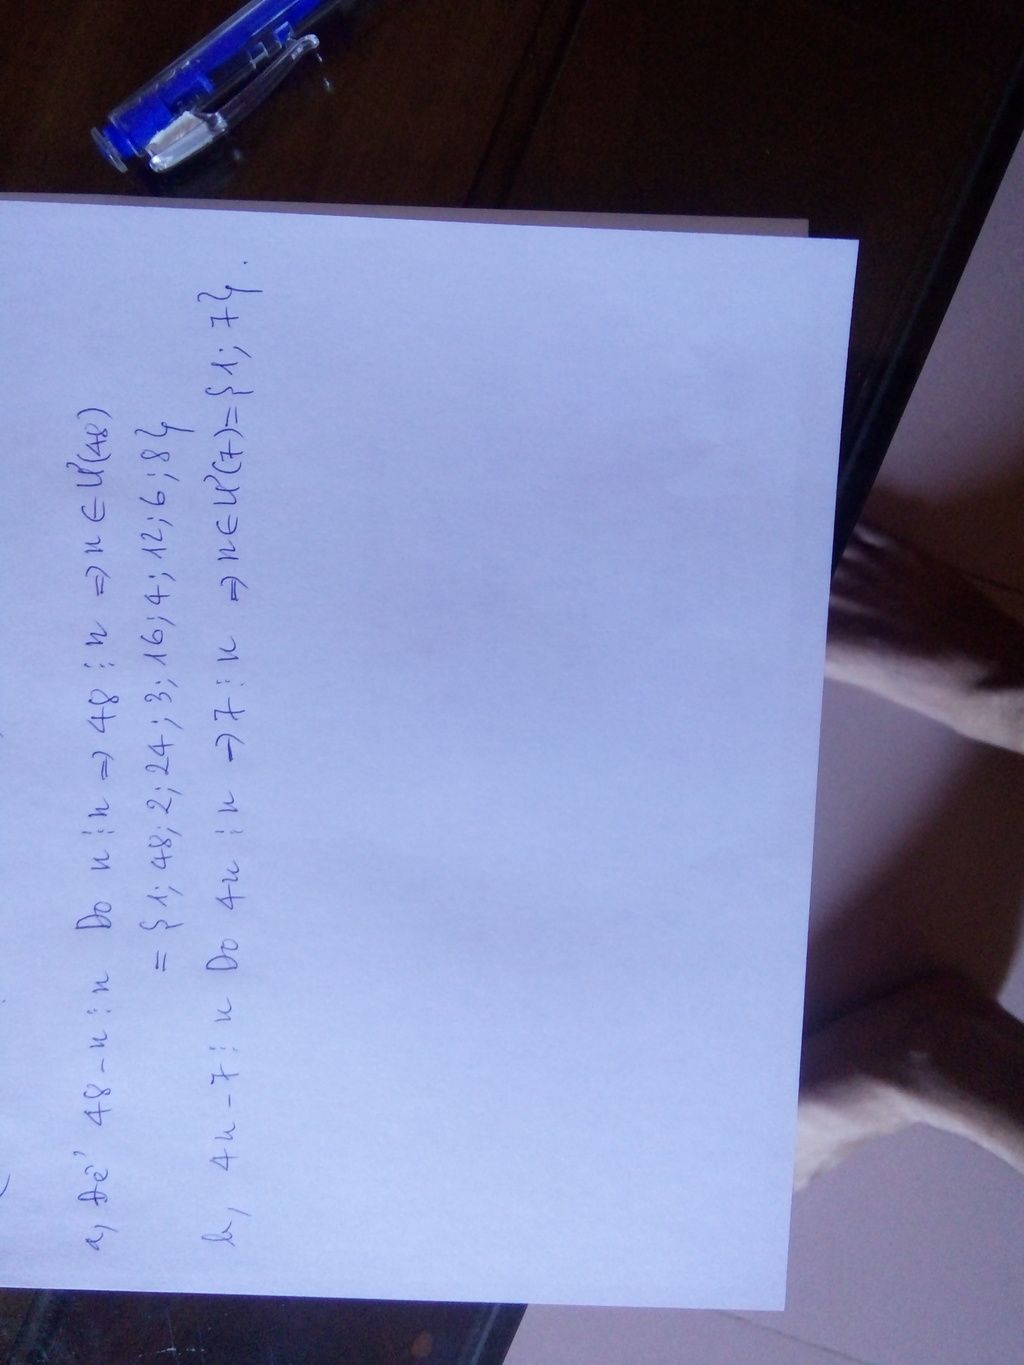 a, Để 48 - n ⋮ n Do n ⋮ n ⇒ 48 ⋮ n ⇒ n ∈ Ư(48)
= {1; 48; 2; 24; 3; 16; 4; 12; 6; 8}
b, 4n - 7 ⋮ n Do 4n ⋮ n ⇒ 7 ⋮ n ⇒ n ∈ Ư(7) = {1; 7}.